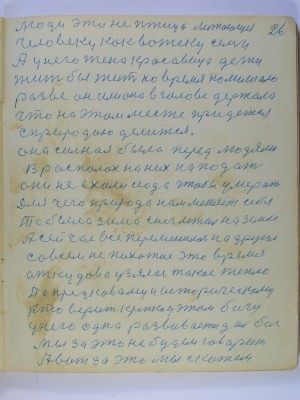 26
люди это не птица летающия
человеку как вожаку семи
А у него жена красавица дети
жит был жит но время поменяло
разве он имено в голове держала
что на этом месте придется
с природою делится.
она силная была перед людями
В располох на них нападат
они не ехали сюда чтобы умират
Для чего природа нам меняет себя
То была зима снег лежал на земле
А сейчас все переменился на другое
совсем не похожее это время
откудова взялос такое тепло
А по предковаму и историческому
кто верит крепко у этом богу
у него одна развивается дол бог
мы за это не будем говорит
А вот за это мы скажем